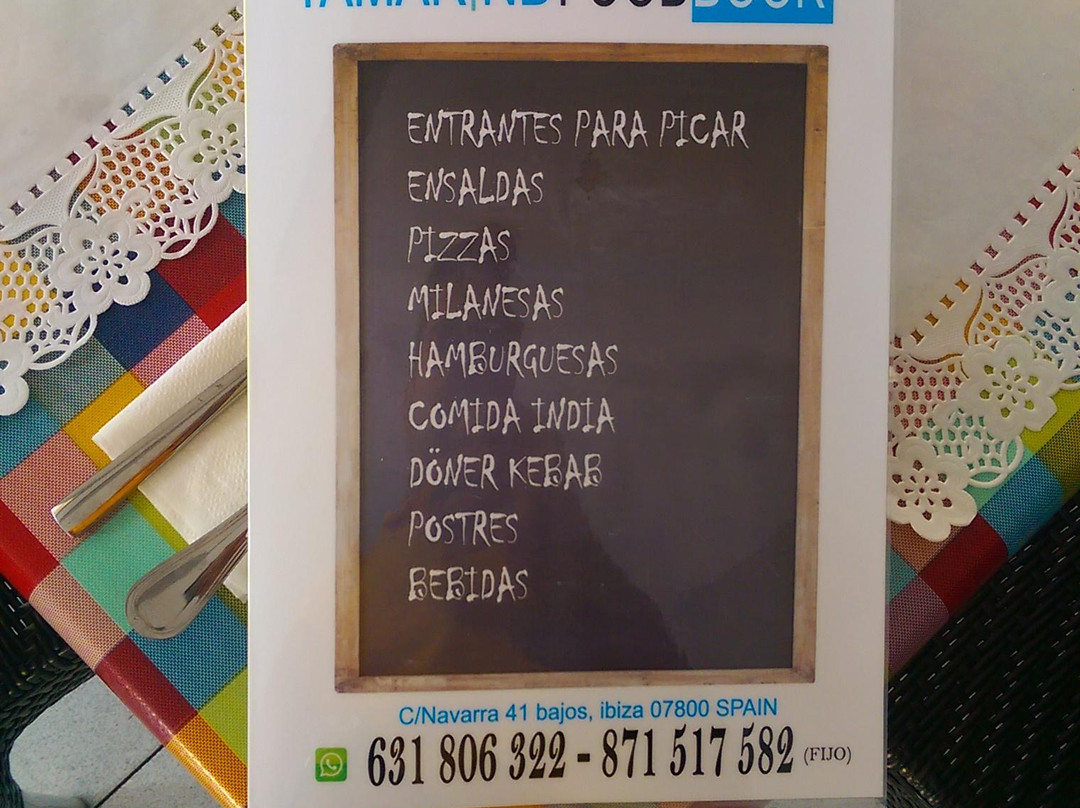 TAMARIND FOOD BOOK
ENTRANTES PARA PICAR
ENSALDAS
PIZZAS
MILANESAS
HAMBURGUESAS
COMIDA INDIA
DÖNER KEBAB
POSTRES
BEBIDAS
C/Navarra 41 bajos, ibiza 07800 SPAIN
631 806 322 - 871 517 582 (FIJO)